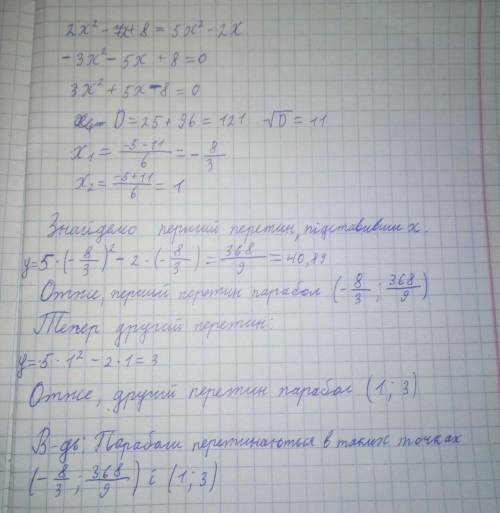 2x² - 7x + 8 = 5x² - 2x
-3x² - 5x + 8 = 0
3x² + 5x - 8 = 0
D = 25 + 96 = 121 √D = 11
x₁ = (-5-11)/6 = -8/3
x₂ = (-5+11)/6 = 1
Знайдемо перший перетин, підставивши x.
y = 5·(-8/3)² - 2·(-8/3) = 368/9 = 40,89
Отже, перший перетин парабол (-8/3; 368/9)
Тепер другий перетин:
y = 5·1² - 2·1 = 3
Отже, другий перетин парабол (1; 3)
В-дь: Параболи перетинаються в таких точках
(-8/3; 368/9) і (1; 3)